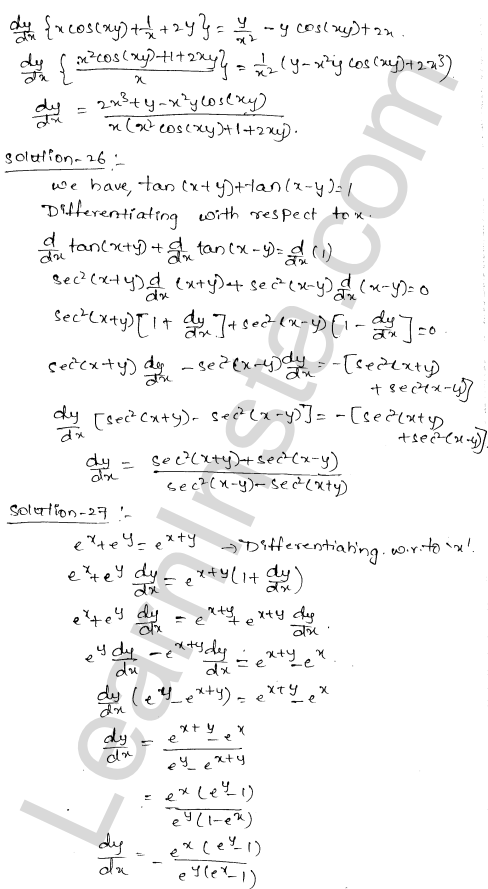 dy/dx {x cos(xy) + 1/x + 2y} = y/x² - y cos(xy) + 2x.
dy/dx { (x² cos(xy) + 1 + 2xy)/x } = 1/x² (y - x²y cos(xy) + 2x³)
dy/dx = (2x³ + y - x²y cos(xy)) / (x(x² cos(xy) + 1 + 2xy)).
Solution-26 :-
We have, tan(x+y) + tan(x-y) = 1
Differentiating with respect to x.
d/dx tan(x+y) + d/dx tan(x-y) = d/dx (1)
sec²(x+y) d/dx (x+y) + sec²(x-y) d/dx (x-y) = 0
sec²(x+y) [1 + dy/dx] + sec²(x-y) [1 - dy/dx] = 0.
sec²(x+y) dy/dx - sec²(x-y) dy/dx = -[sec²(x+y)
+ sec²(x-y)]
dy/dx [sec²(x+y) - sec²(x-y)] = -[sec²(x+y)
+ sec²(x-y)].
dy/dx = (sec²(x+y) + sec²(x-y)) / (sec²(x-y) - sec²(x+y))
Solution-27 :-
e^x + e^y = e^(x+y) → Differentiating. w.r.to 'x'.
e^x + e^y dy/dx = e^(x+y) (1 + dy/dx)
e^x + e^y dy/dx = e^(x+y) + e^(x+y) dy/dx.
e^y dy/dx - e^(x+y) dy/dx = e^(x+y) - e^x.
dy/dx (e^y - e^(x+y)) = e^(x+y) - e^x
dy/dx = (e^(x+y) - e^x) / (e^y - e^(x+y))
= e^x (e^y - 1) / e^y (1 - e^x)
dy/dx = - e^x (e^y - 1) / e^y (e^x - 1)
LearnInsta.com